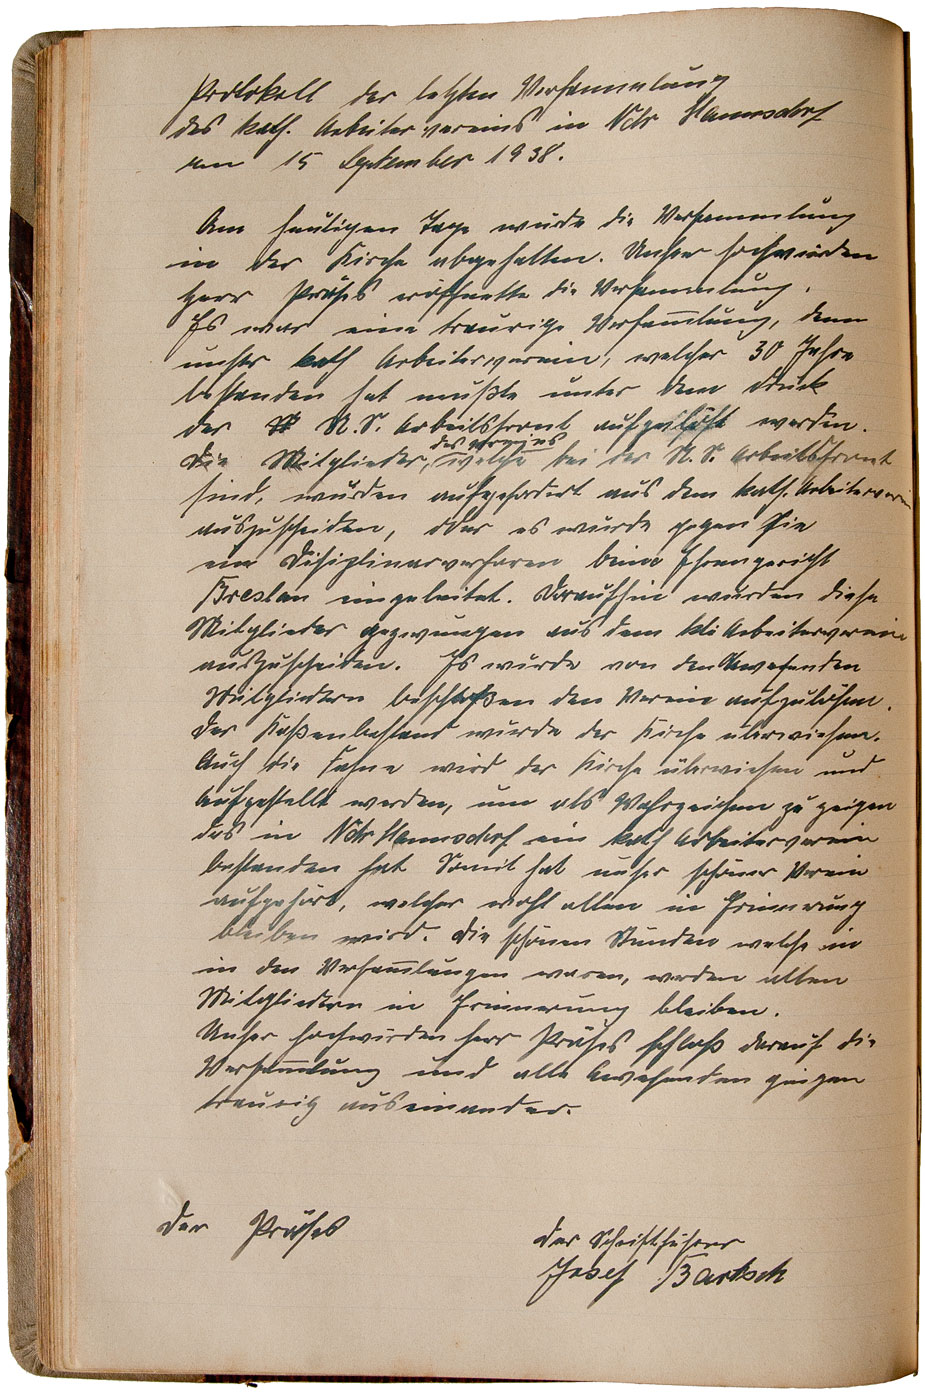 Protokoll der letzten Versammlung
des kath. Arbeitervereins in Ndr Hannsdorf
am 15 September 1938.
Am heutigen Tage wurde die Versammlung
in der Kirche abgehalten. Unser hochwürden
Herr Präses eröffnette die Versammlung.
Es war eine traurige Versam̅lung, denn
unser kath Arbeiterverein, welcher 30 Jahre
bestanden hat mußte unter dem Druck
der N.S. Arbeitsfront aufgelößt werden.
Die Mitglieder, des Vereins welche bei der N.S. Arbeitsfront
sind, wurden aufgefordert aus dem kath. Arbeiterverein
auszuscheiden, oder es wurde gegen Sie
ein Disiplinarverfaren beim Ehrengericht
Breslau eingeleitet. Daraufhin wurden diese
Mitglieder gezwungen aus dem Arbeiterverein
auszuscheiden. Es wurde von den Anwesenden
Mitgliedern beschloßen den Verein aufzulösen.
Der Kaßenbestand wurde der Kirche überwiesen.
Auch die Fahne wird der Kirche überwiesen und
Aufgestellt werden, um als Wahrzeichen zu zeigen
das in Ndr Hannsdorf ein kath Arbeiterverein
bestanden hat Somit hat unser schöner Verein
aufgehört, welcher wohl allen in Erinnerung
bleiben wird. Die schönen Stunden welche in
in den Versam̅lungen waren, werden allen
Mitgliedern in Erinnerung bleiben.
Unser hochwürden Herr Präses schloß darauf die
Versam̅lung und alle Anwesenden gingen
traurig auseinander.
Der Präses
Der Schriftführer
Josef Bartsch